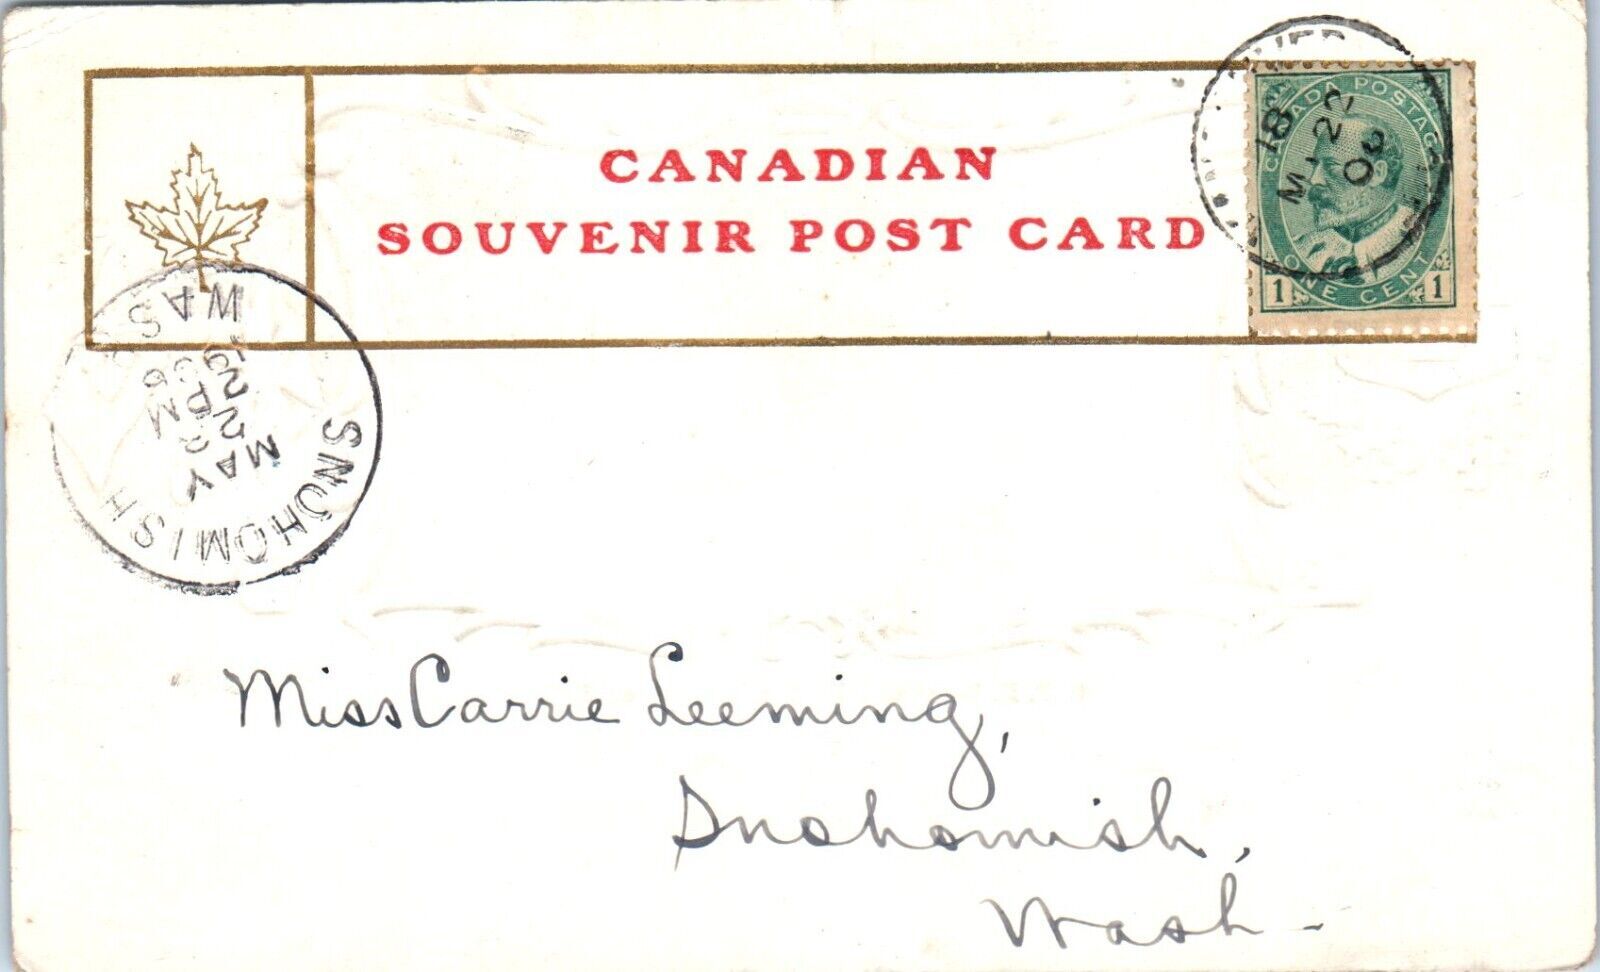 CANADIAN
SOUVENIR POST CARD
18
MY 22
06
CANADA POSTAGE
1 ONE CENT 1
SNOHOMISH
WASH
MAY
22
2 PM
1906
Miss Carrie Leeming,
Snohomish,
Wash-